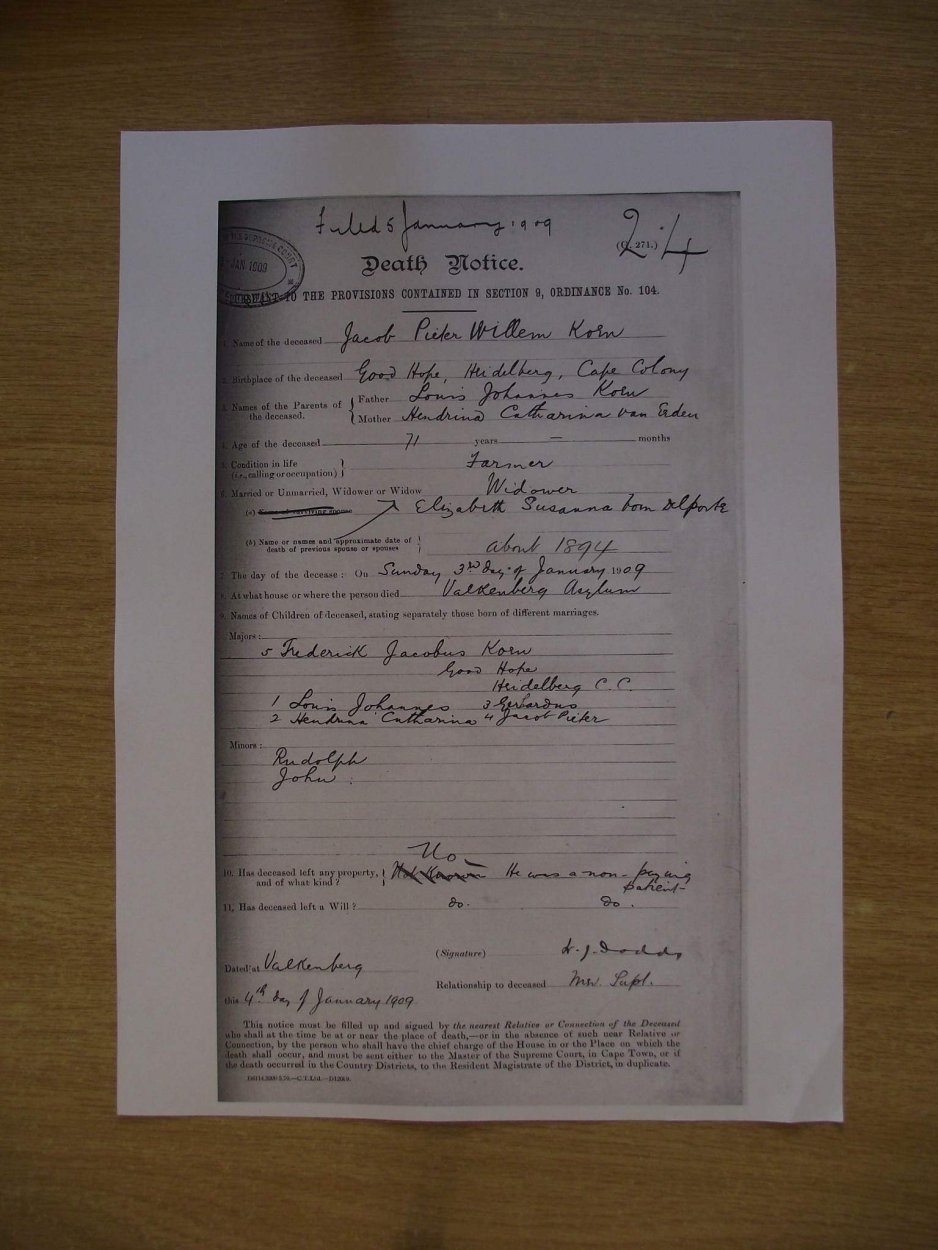 Filed 5 January 1909
(C. 271.) 2/4
SUPREME COURT
JAN 1909
Death Notice.
TO THE PROVISIONS CONTAINED IN SECTION 9, ORDINANCE No. 104.
1. Name of the deceased Jacob Pieter Willem Korn
2. Birthplace of the deceased Good Hope, Heidelberg, Cape Colony
3. Names of the Parents of the deceased. { Father Louis Johannes Korn
{ Mother Hendrina Catharina van Erden
4. Age of the deceased 71 years — months
5. Condition in life (i.e., calling or occupation) } Farmer
6. Married or Unmarried, Widower or Widow Widower
(a) Name of surviving spouse Elizabeth Susanna
(b) Name or names and approximate date of death of previous spouse or spouses } about 1894
7. The day of the decease: On Sunday 3rd day of January 1909
8. At what house or where the person died Valkenberg Asylum
9. Names of Children of deceased, stating separately those born of different marriages.
Majors:
5 Frederick Jacobus Korn
Good Hope
Heidelberg C.C.
1 Louis Johannes 3 Gerhardus
2 Hendrina Catharina 4 Jacob Pieter
Minors:
Rudolph
John
No
10. Has deceased left any property, and of what kind? { Not Known He was a non-paying
patient
11. Has deceased left a Will? do. do.
(Signature) W. J. Dodds
Dated at Valkenberg
Relationship to deceased Med. Supt.
this 4th day of January 1909
This notice must be filled up and signed by the nearest Relative or Connection of the Deceased
who shall at the time be at or near the place of death,—or in the absence of such near Relative or
Connection, by the person who shall have the chief charge of the House in or the Place on which the
death shall occur, and must be sent either to the Master of the Supreme Court, in Cape Town, or if
the death occurred in the Country Districts, to the Resident Magistrate of the District, in duplicate.